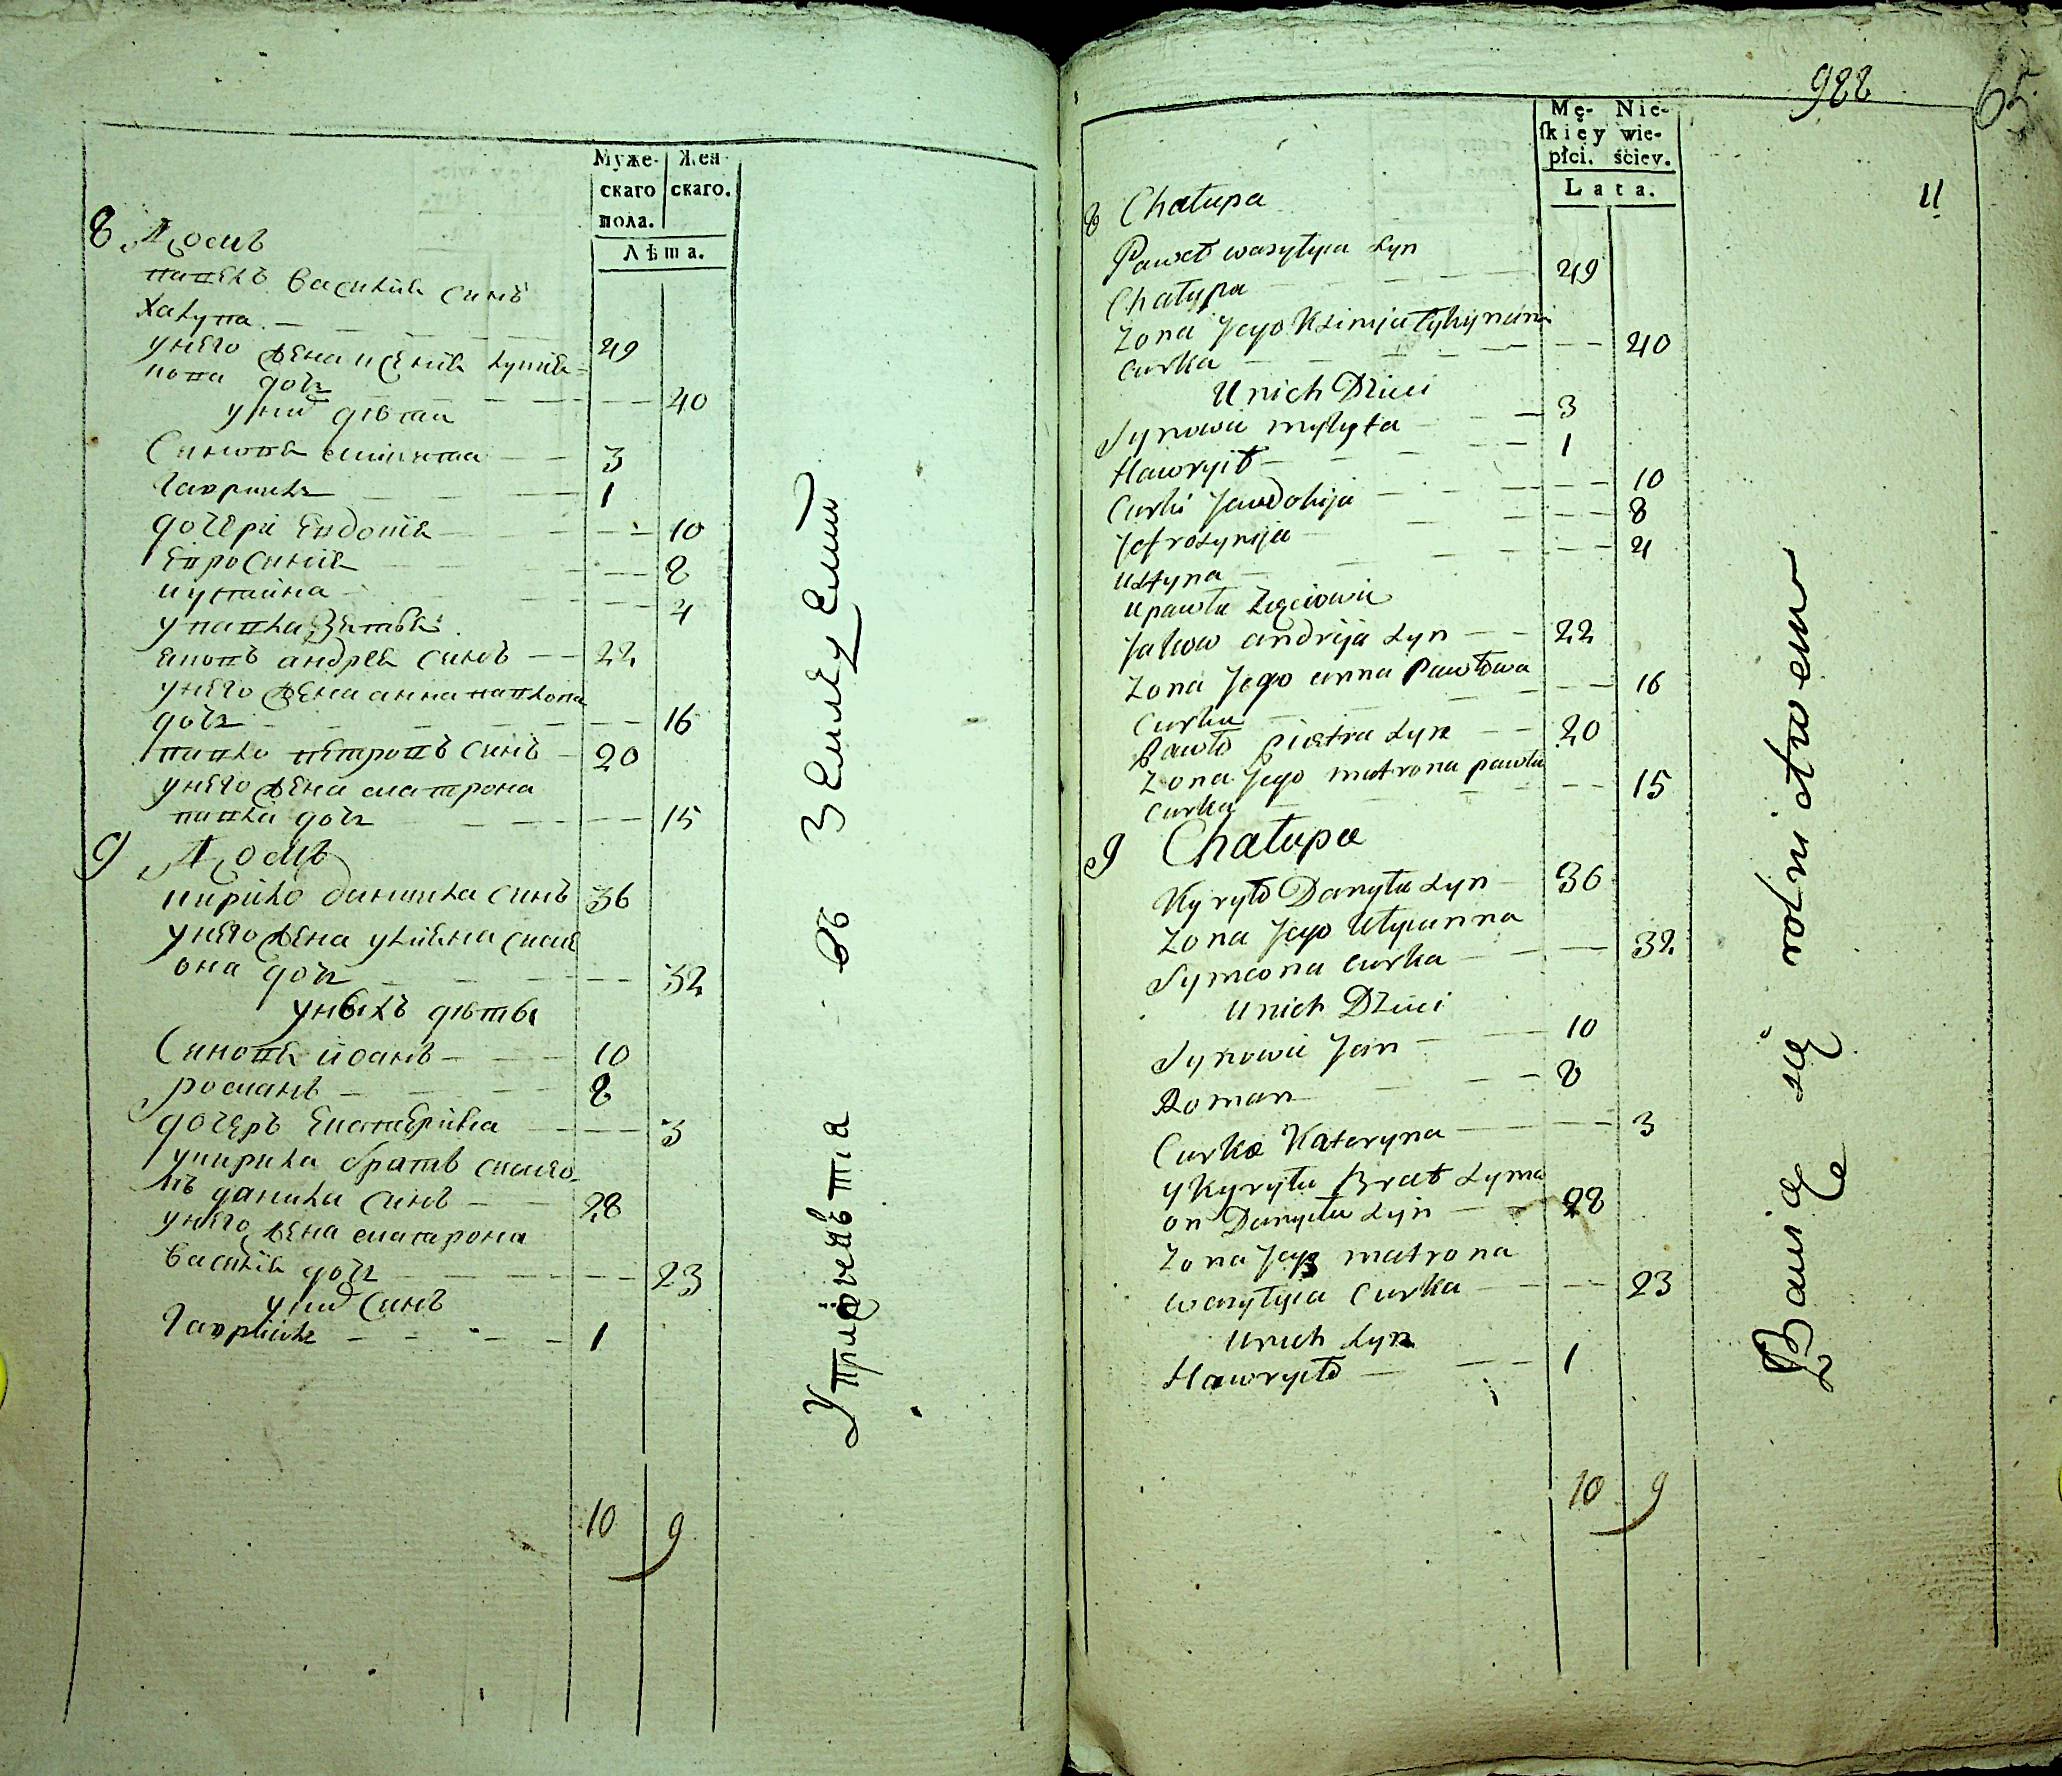 Муже-
скаго
пола.
Жен
скаго.
Лѣта.
8 Домъ
павелъ василія синъ
халупа
49
у него жена ксенія
дочъ
40
у них дѣти
Синовя микита 3
гавриль 1
дочери евдокія 10
евросинія 8
иустина 4
у павла зятья
яковъ андрея синъ 22
у него жена анна павлова
дочъ 16
павло петровъ синъ 20
у него жена матрона
павла дочъ 15
9 Домъ
кирило данила синъ 36
у него жена улияна симе
она дочъ 32
у ныхъ дѣты
Синовя иоанъ 10
романъ 8
дочеръ екатерина 3
у кирила братъ симео
нъ данила синъ 28
у него жена матрона
василія дочъ 23
у них синъ
гавриилъ 1
10 9
Упражнявъта въ Земледелии
988
65
11
Mę-
ſkiey
płci.
Nie-
wie-
ściey.
Lata.
8 Chałupa
Paweł wasylyia syn
Chałupa 49
Zona Jego Ksinija
curka 40
U nich Dzieci
Synowie mykyta 3
Hawrył 1
Curki Jawdokija 10
Jefrosynija 8
ustyna 4
u pawła Zięciowie
Jakow andrija syn 22
Zona Jego anna Pawłowa
curka 16
Pawło Pietra syn 20
Zona Jego matrona pawła
curka 15
9 Chałupa
Kyryło Danyła syn 36
Zona Jego Ulyianna
Symeona curka 32
U nich Dzieci
Synowie Jan 10
Roman 8
Curka Kateryna 3
y Kyryła Brat syme
on Danyła syn 28
Zona Jego matrona
wasylyia Curka 23
U nich syn
Hawryło 1
10 9
Bawią się rolnictwem